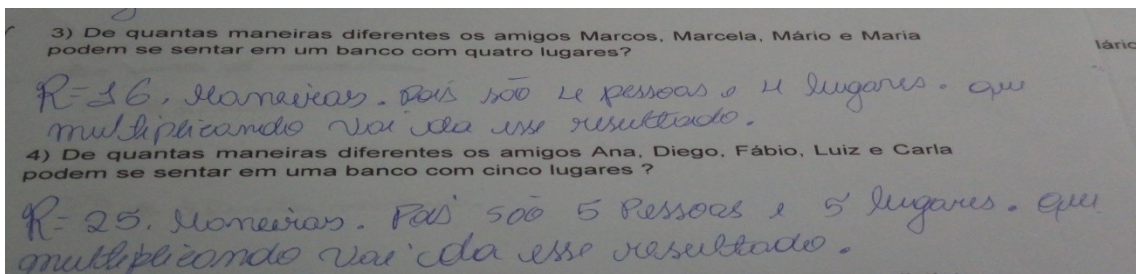 3) De quantas maneiras diferentes os amigos Marcos, Marcela, Mário e Maria
podem se sentar em um banco com quatro lugares?
lário
R=16, Maneiras. Pois são 4 pessoas e 4 lugares. que
multiplicando vai da esse resultado.
4) De quantas maneiras diferentes os amigos Ana, Diego, Fábio, Luiz e Carla
podem se sentar em uma banco com cinco lugares ?
R= 25. Maneiras. Pois são 5 Pessoas e 5 lugares. que
multiplicando vai da esse resultado.